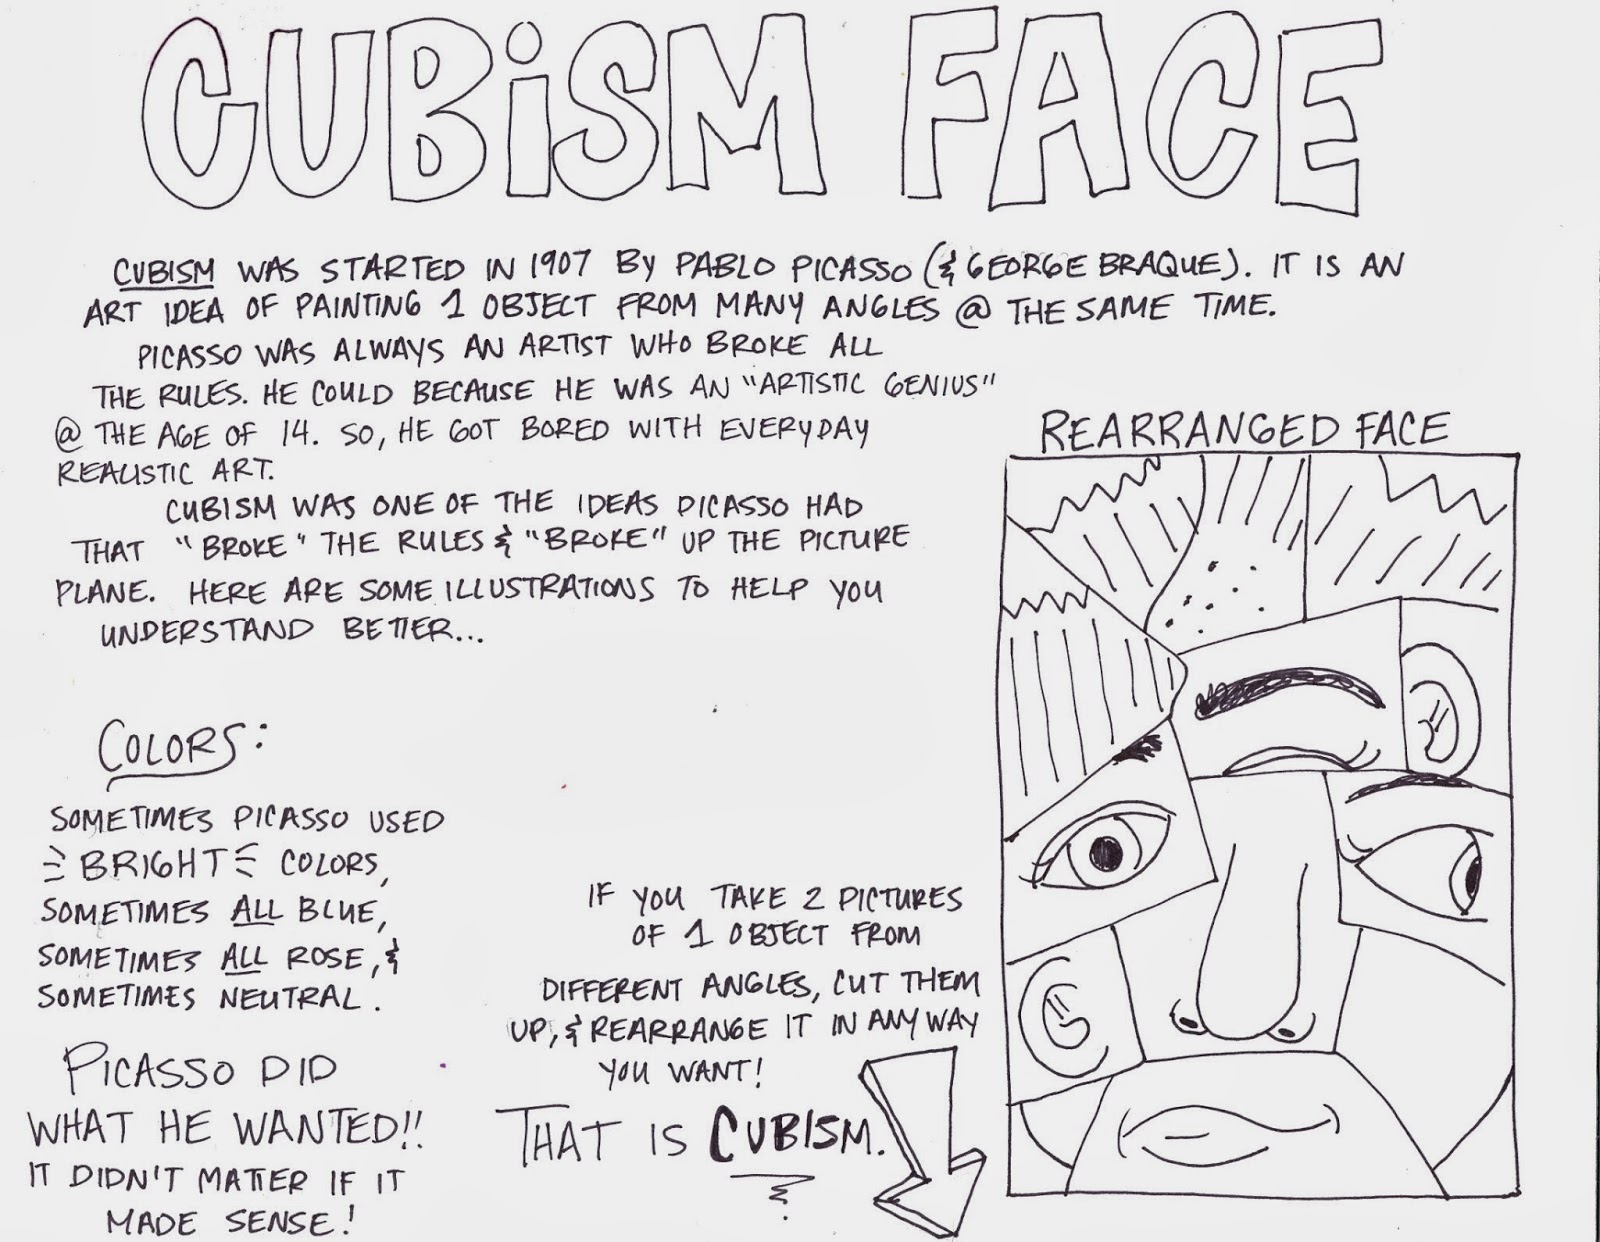 CUBiSM FACE
CUBISM WAS STARTED IN 1907 BY PABLO PICASSO (& GEORGE BRAQUE). IT IS AN
ART IDEA OF PAINTING 1 OBJECT FROM MANY ANGLES @ THE SAME TIME.
PICASSO WAS ALWAYS AN ARTIST WHO BROKE ALL
THE RULES. HE COULD BECAUSE HE WAS AN "ARTISTIC GENIUS"
@ THE AGE OF 14. SO, HE GOT BORED WITH EVERYDAY
REALISTIC ART.
CUBISM WAS ONE OF THE IDEAS PICASSO HAD
THAT "BROKE" THE RULES & "BROKE" UP THE PICTURE
PLANE. HERE ARE SOME ILLUSTRATIONS TO HELP YOU
UNDERSTAND BETTER...
COLORS:
SOMETIMES PICASSO USED
BRIGHT COLORS,
SOMETIMES ALL BLUE,
SOMETIMES ALL ROSE, &
SOMETIMES NEUTRAL.
PICASSO DID
WHAT HE WANTED!!
IT DIDN'T MATTER IF IT
MADE SENSE!
IF YOU TAKE 2 PICTURES
OF 1 OBJECT FROM
DIFFERENT ANGLES, CUT THEM
UP, & REARRANGE IT IN ANY WAY
YOU WANT!
THAT IS CUBISM.
REARRANGED FACE